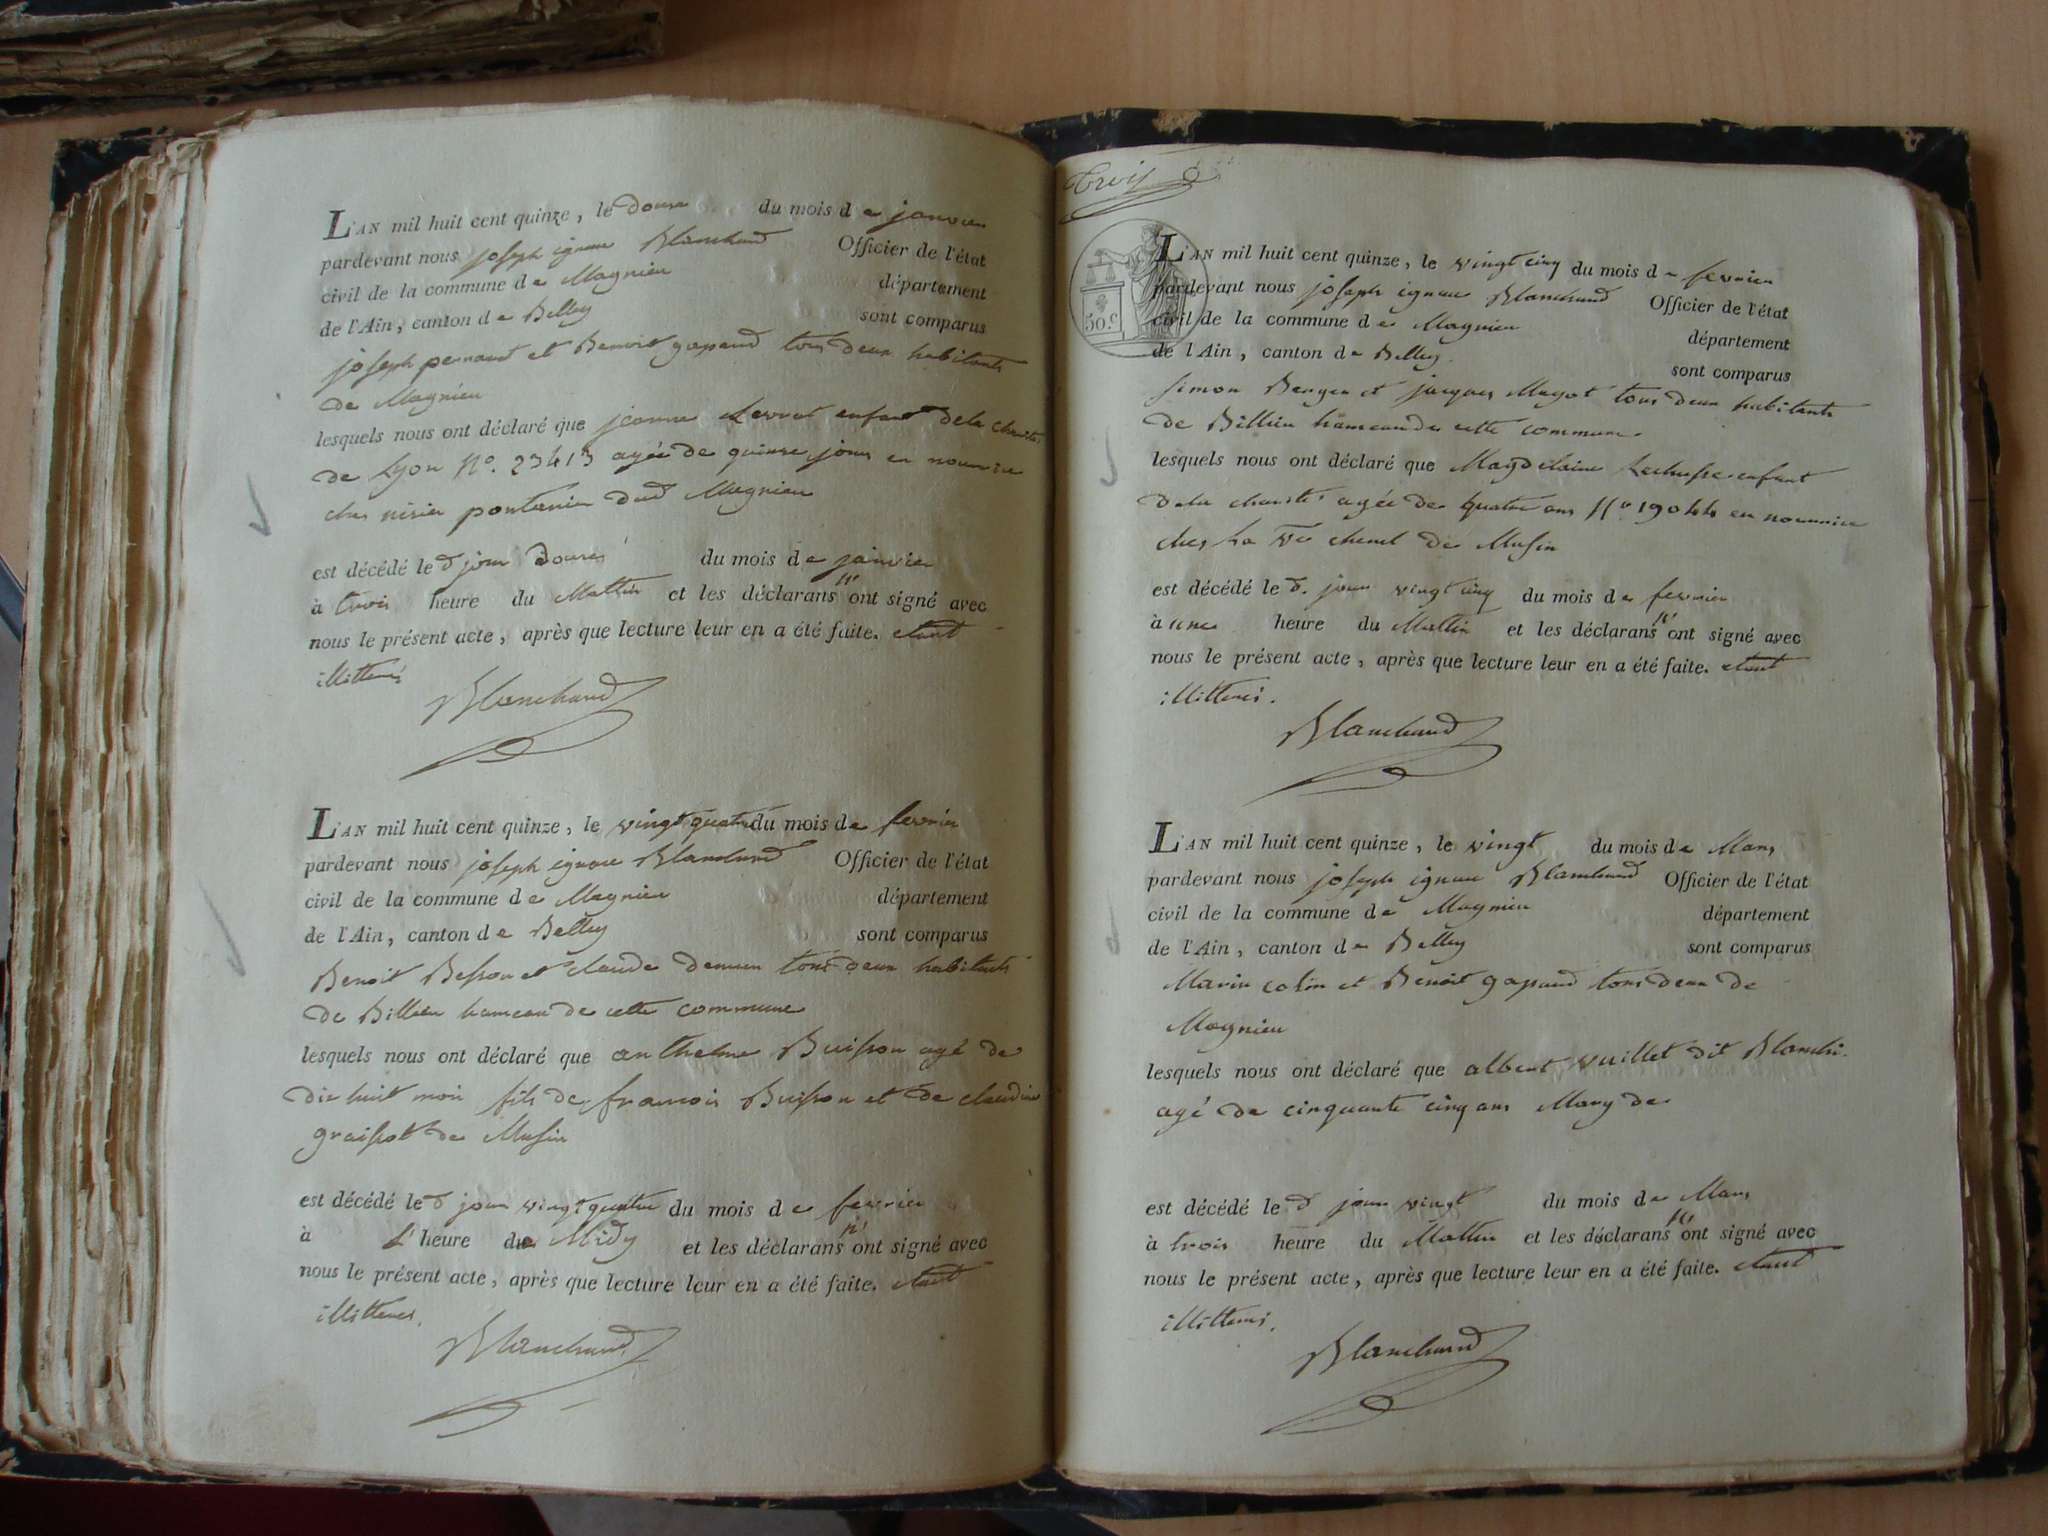 L'AN mil huit cent quinze, le douze du mois de janvier
pardevant nous joseph ignace Blanchard Officier de l'état
civil de la commune de Magnieu département
de l'Ain, canton de Belley sont comparus
joseph pernaud et Benoit gapaud tous deux habitants
de Magnieu
lesquels nous ont déclaré que jeanne enfant dela charité
de Lyon N°. 23413 agée de quinze jours en nourrice
ches nisier pontanier dud Magnieu
est décédé le d jour douze du mois de janvier
à trois heure du Mattin et les déclarans n' ont signé avec
nous le présent acte, après que lecture leur en a été faite. etant
illitteres
Blanchard
L'AN mil huit cent quinze, le vingt quatre du mois de fevrier
pardevant nous joseph ignace Blanchard Officier de l'état
civil de la commune de Magnieu département
de l'Ain, canton de Belley sont comparus
Benoit Besson et claude tous deux habitants
de Billieu hameau de cette commune
lesquels nous ont déclaré que anthelme Buisson agé de
dix huit mois fils de francois Buisson et de claudine
graissot de Musin
est décédé le d jour vingt quatre du mois de fevrier
à L' heure de Midy et les déclarans n' ont signé avec
nous le présent acte, après que lecture leur en a été faite. etant
illitteres.
Blanchard
Trois
50.c
L'AN mil huit cent quinze, le vingt cinq du mois de fevrier
pardevant nous joseph ignace Blanchard Officier de l'état
civil de la commune de Magnieu département
de l'Ain, canton de Belley. sont comparus
simon Berger et jacques Magot tous deux habitants
de Billieu hameau de cette commune.
lesquels nous ont déclaré que Magdelaine enfant
dela charité agée de quatre ans N° 19044 en nourrice
ches La Ve chenet de Musin
est décédé le d. jour vingt cinq du mois de fevrier
à une heure du Mattin et les déclarans n' ont signé avec
nous le présent acte, après que lecture leur en a été faite. etant
illitteres.
Blanchard
L'AN mil huit cent quinze, le vingt du mois de Mars
pardevant nous joseph ignace Blanchard Officier de l'état
civil de la commune de Magnieu département
de l'Ain, canton de Belley sont comparus
Marin colin et Benoit gapaud tous deux de
Magnieu
lesquels nous ont déclaré que albert vuillet dit Blanchi.
agé de cinquante cinq ans Mary de
est décédé le d jour vingt du mois de Mars
à trois heure du Mattin et les déclarans n' ont signé avec
nous le présent acte, après que lecture leur en a été faite. etant
illitteres.
Blanchard